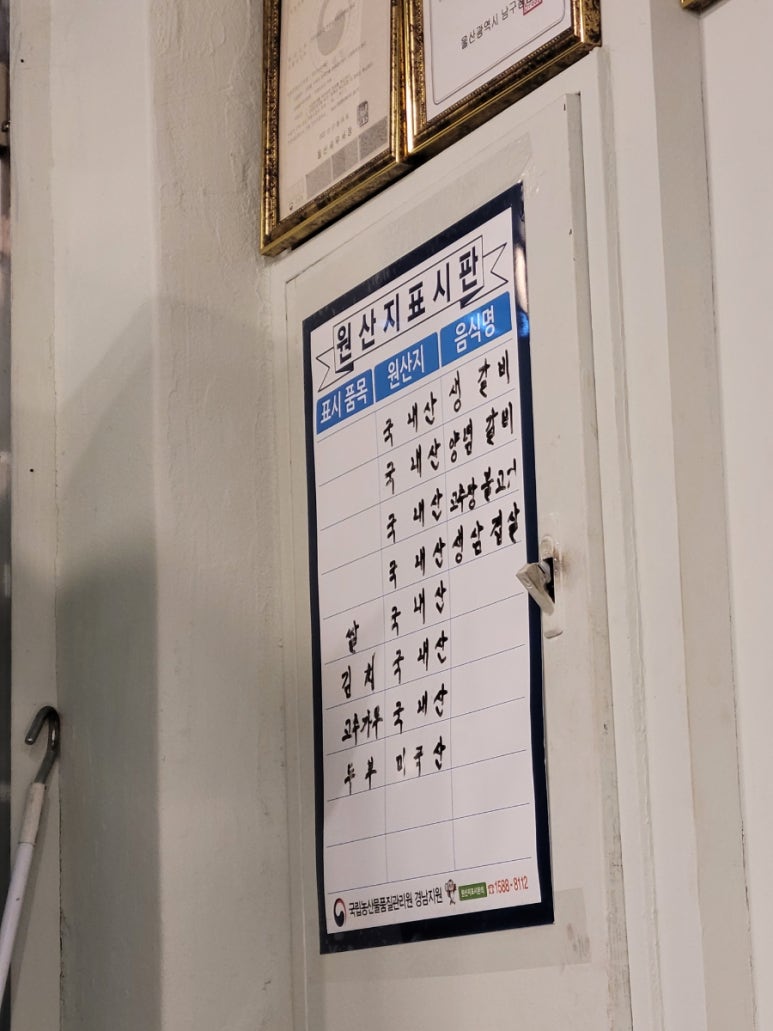 울산광역시 남구
원산지표시판
표시 품목 원산지 음식명
국내산 생갈비
국내산 양념갈비
국내산 고추장불고기
국내산 생삼겹살
쌀 국내산
김치 국내산
고추가루 국내산
두부 미국산
국립농산물품질관리원 경남지원 원산지표시문의 ☎1588-8112